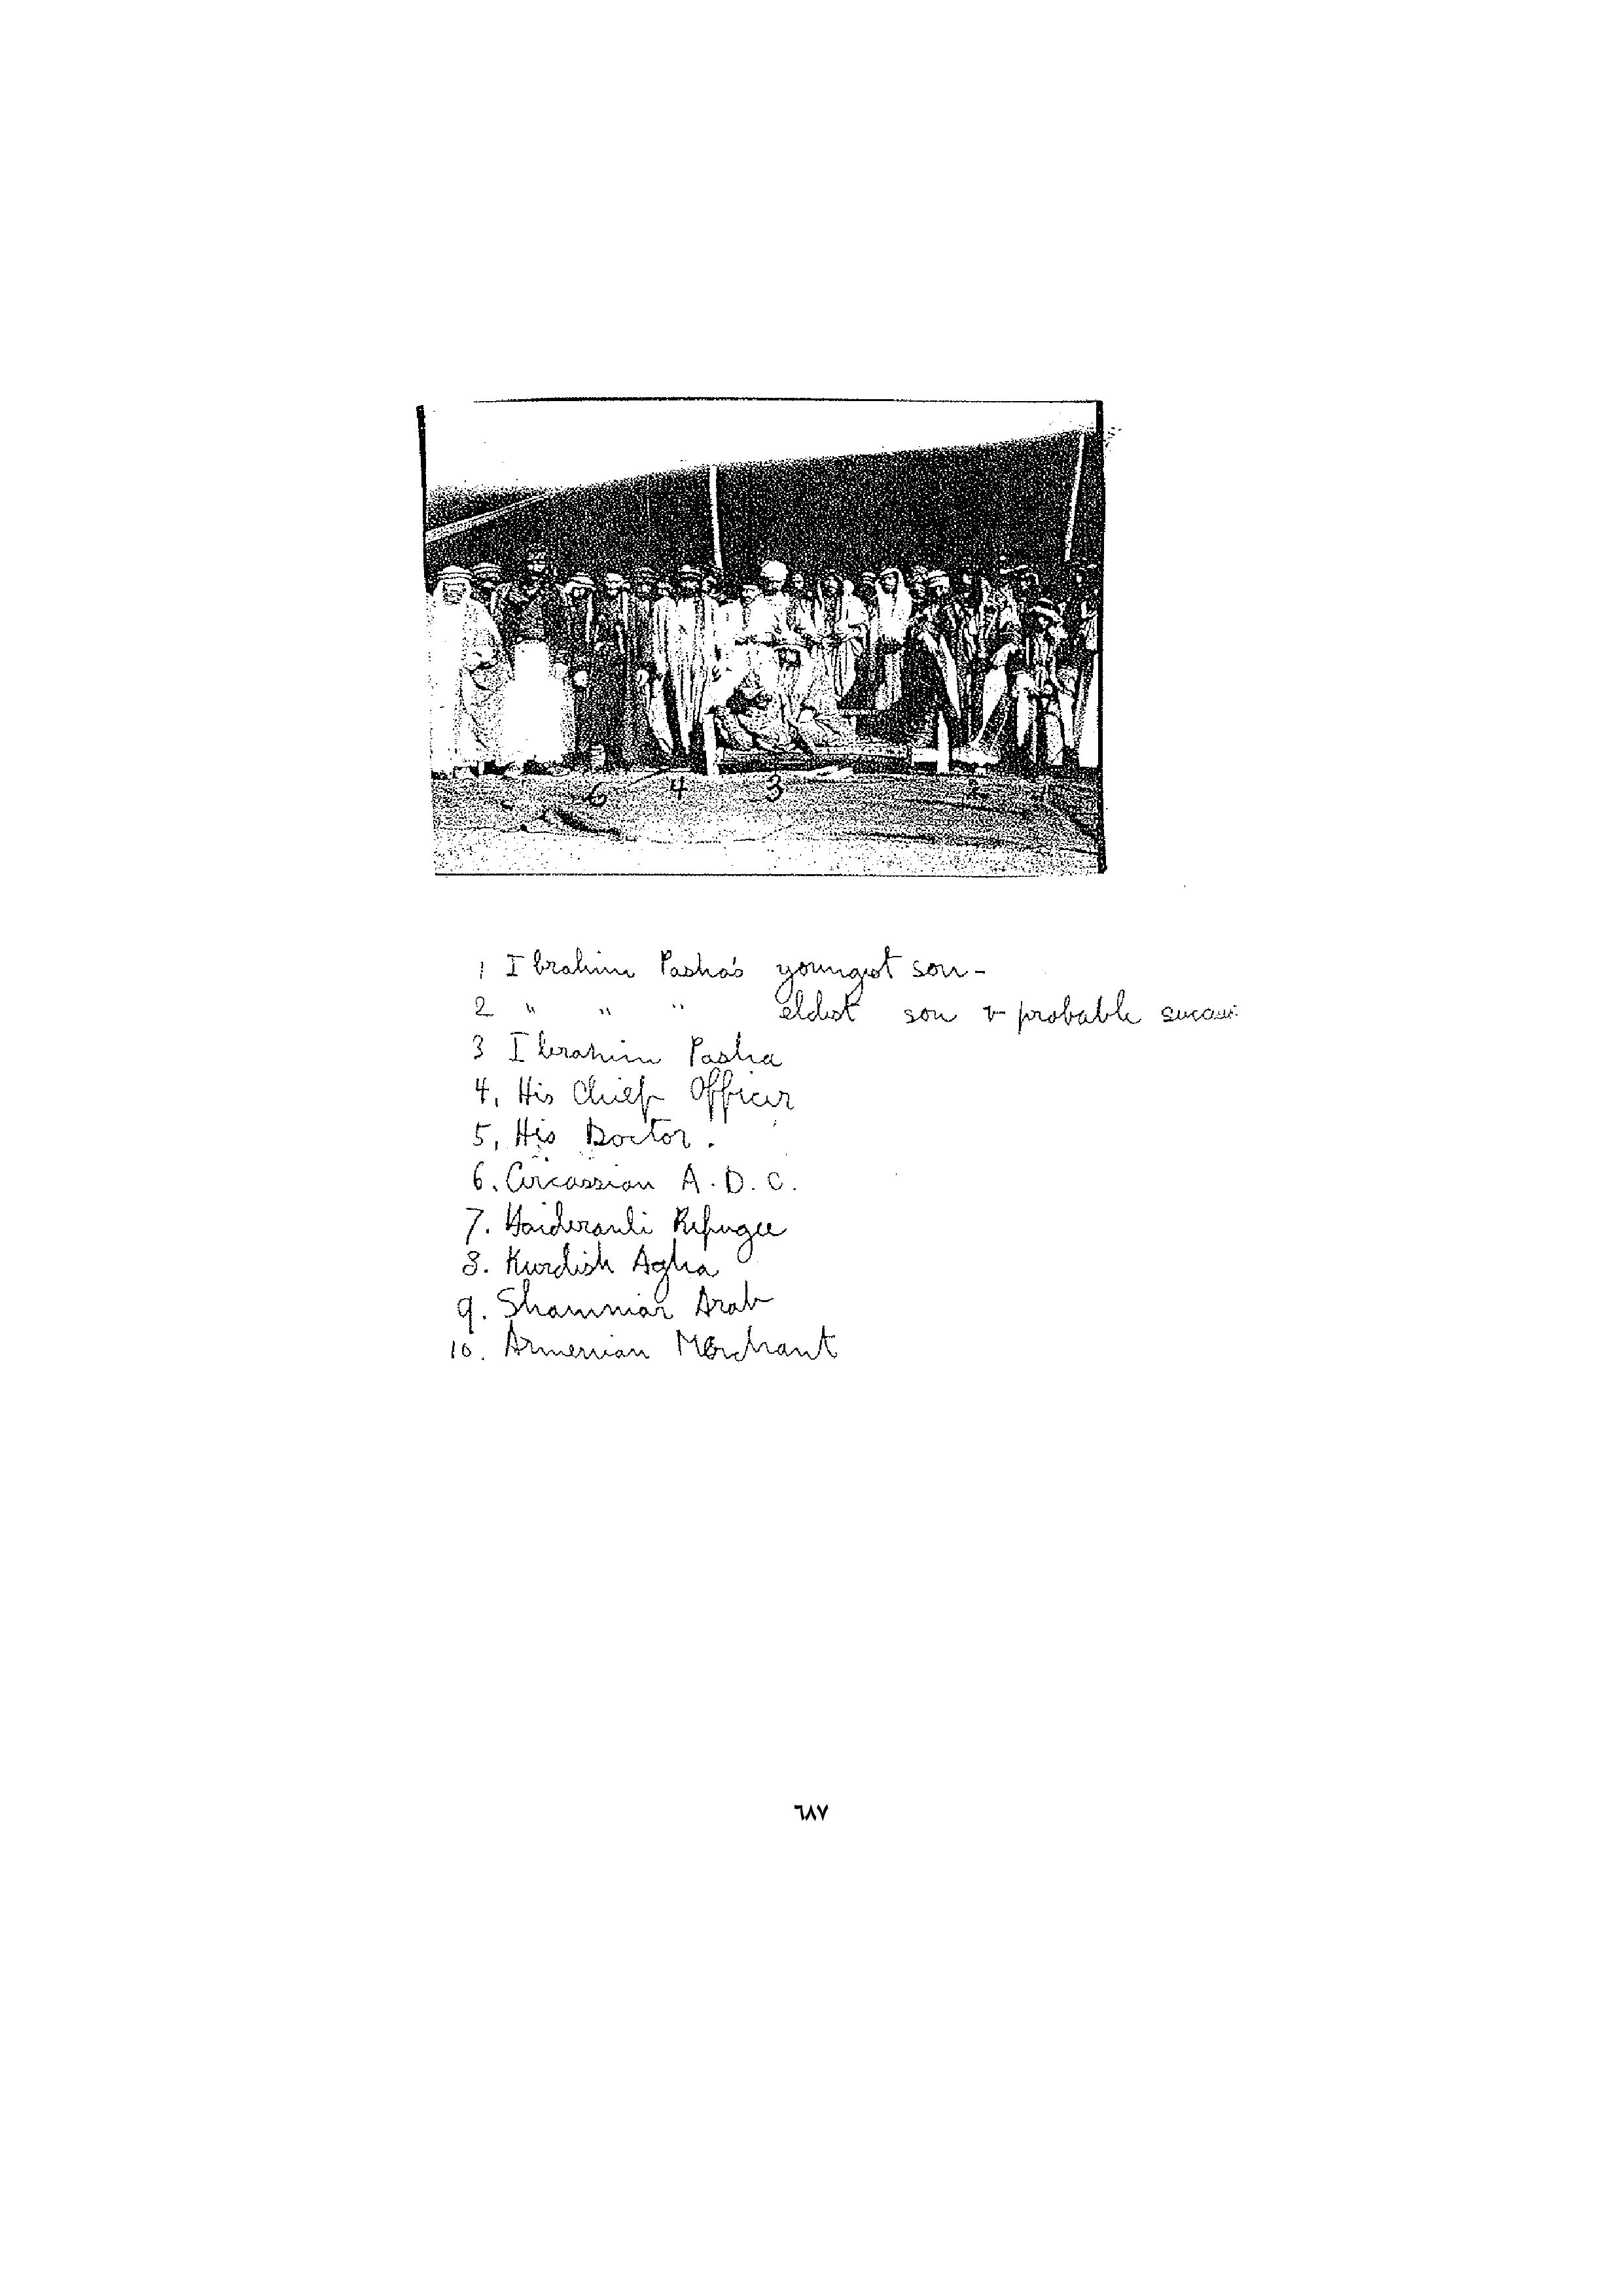 6 4 3
1 Ibrahim Pasha's youngest son -
2 " " " eldest son & probable
3 Ibrahim Pasha
4, His Chief Officer
5, His Doctor.
6. Circassian A.D.C.
7. Haideranli Refugee
8. Kurdish Agha
9. Shammar Arab
10. Armenian Merchant
٦٨٧